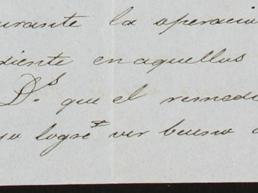 urante la operació
diente en aquellos
D.s que el remedi
yo logré ver bueno a